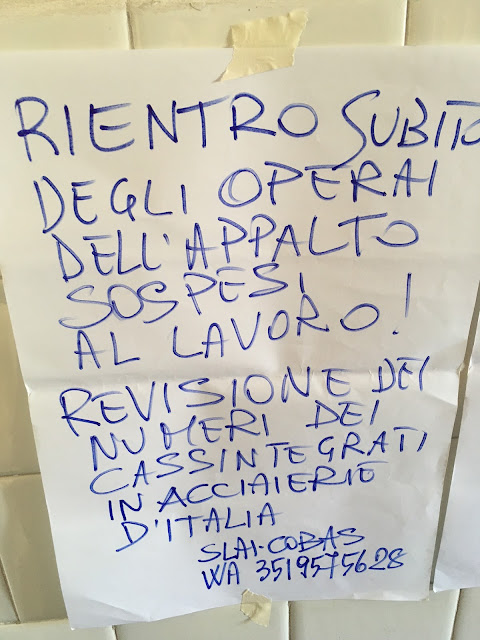 RIENTRO SUBITO
DEGLI OPERAI
DELL'APPALTO
SOSPESI
AL LAVORO!
REVISIONE DEI
NUMERI DEI
CASSINTEGRATI
IN ACCIAIERIE
D'ITALIA
SLAI-COBAS
WA 3519575628